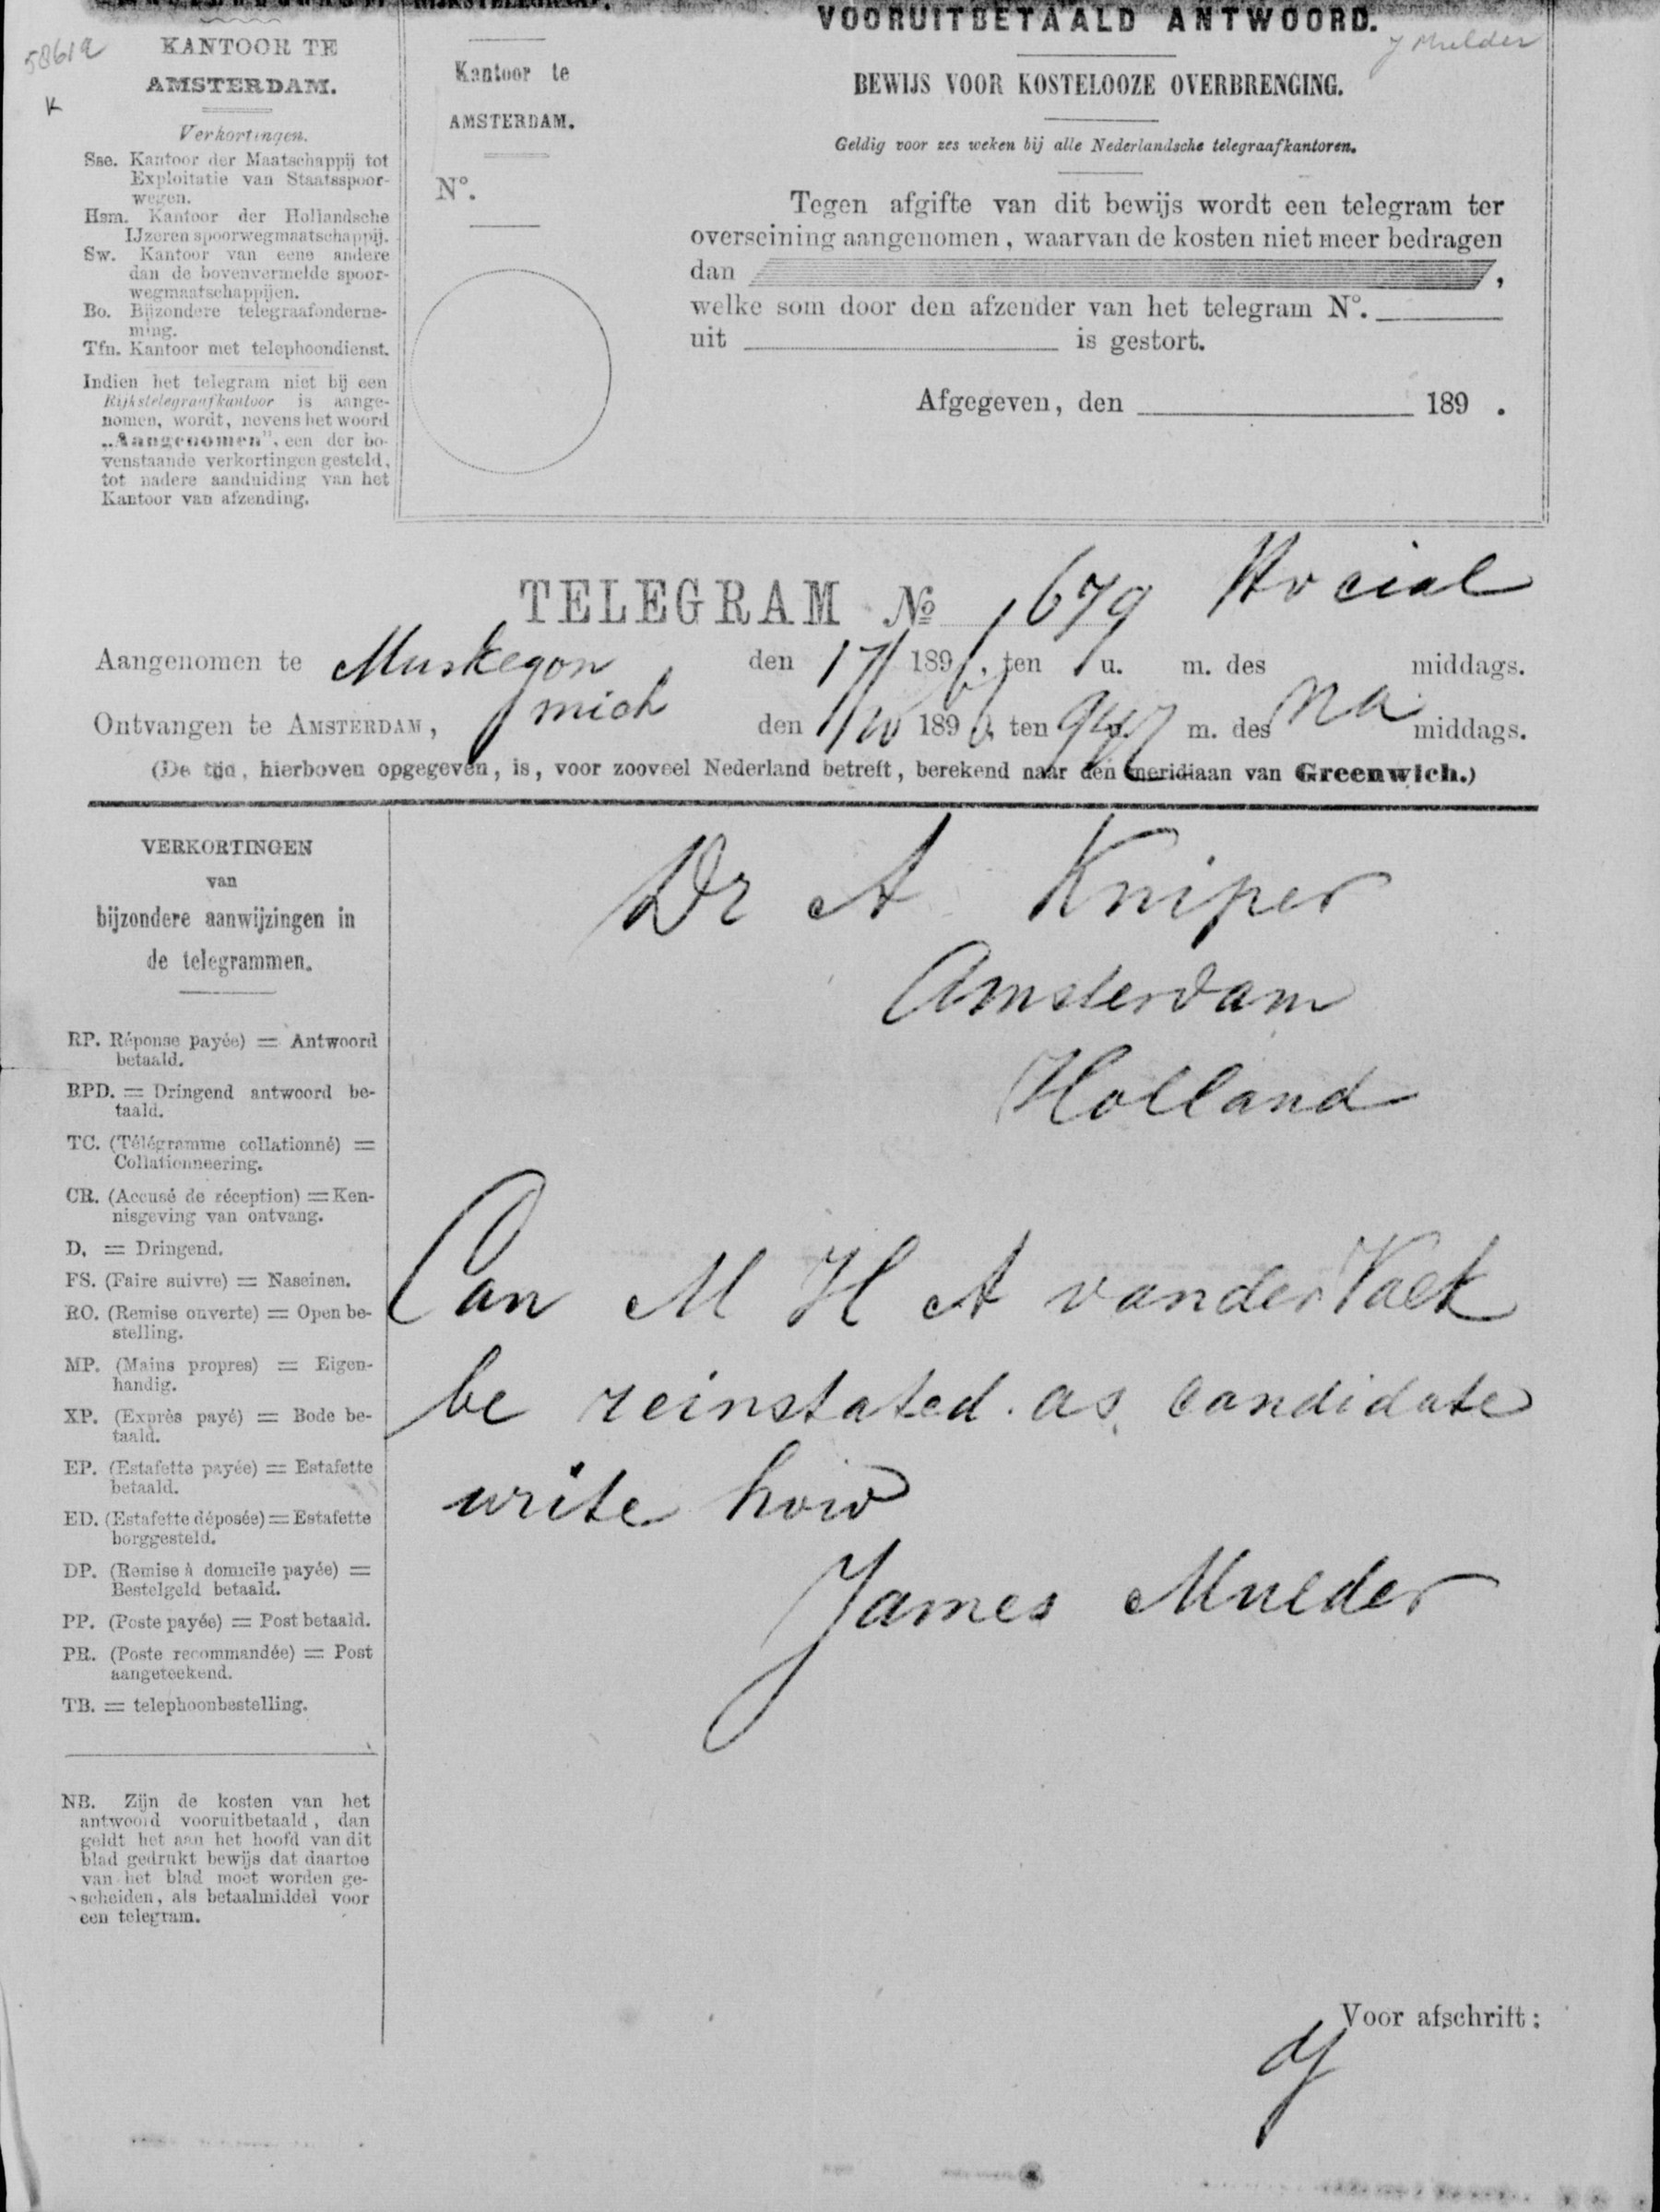 5861a
K
KANTOOR TE
AMSTERDAM.
Verkortingen.
Sse. Kantoor der Maatschappij tot
Exploitatie van Staatsspoor-
wegen.
Hsm. Kantoor der Hollandsche
IJzeren spoorwegmaatschappij.
Sw. Kantoor van eene andere
dan de bovenvermelde spoor-
wegmaatschappijen.
Bo. Bijzondere telegraafonderne-
ming.
Tfn. Kantoor met telephoondienst.
Indien het telegram niet bij een
Rijkstelegraafkantoor is aange-
nomen, wordt, nevens het woord
„Aangenomen", een der bo-
venstaande verkortingen gesteld,
tot nadere aanduiding van het
Kantoor van afzending.
Kantoor te
AMSTERDAM.
N°.
VOORUITBETAALD ANTWOORD.
J Mulder
BEWIJS VOOR KOSTELOOZE OVERBRENGING.
Geldig voor zes weken bij alle Nederlandsche telegraafkantoren.
Tegen afgifte van dit bewijs wordt een telegram ter
overseining aangenomen, waarvan de kosten niet meer bedragen
dan ,
welke som door den afzender van het telegram N°.
uit is gestort.
Afgegeven, den 189 .
TELEGRAM № 1679
Aangenomen te Muskegon den 17/ 1896, ten u. m. des middags.
mich
Ontvangen te AMSTERDAM, den 189 ten m. des na middags.
(De tijd, hierboven opgegeven, is, voor zooveel Nederland betreft, berekend naar den meridiaan van Greenwich.)
VERKORTINGEN
van
bijzondere aanwijzingen in
de telegrammen.
RP. Réponse payée) = Antwoord
betaald.
RPD. = Dringend antwoord be-
taald.
TC. (Télégramme collationné) =
Collationneering.
CR. (Accusé de réception) = Ken-
nisgeving van ontvang.
D. = Dringend.
FS. (Faire suivre) = Naseinen.
RO. (Remise ouverte) = Open be-
stelling.
MP. (Mains propres) = Eigen-
handig.
XP. (Exprès payé) = Bode be-
taald.
EP. (Estafette payée) = Estafette
betaald.
ED. (Estafette déposée) = Estafette
borggesteld.
DP. (Remise à domicile payée) =
Bestelgeld betaald.
PP. (Poste payée) = Post betaald.
PR. (Poste recommandée) = Post
aangeteekend.
TB. = telephoonbestelling.
NB. Zijn de kosten van het
antwoord vooruitbetaald, dan
geldt het aan het hoofd van dit
blad gedrukt bewijs dat daartoe
van het blad moet worden ge-
scheiden, als betaalmiddel voor
een telegram.
Dr A Kuiper
Amsterdam
Holland
Can M H A vander Valk
be reinstated as candidate
write how
James Mulder
Voor afschrift: